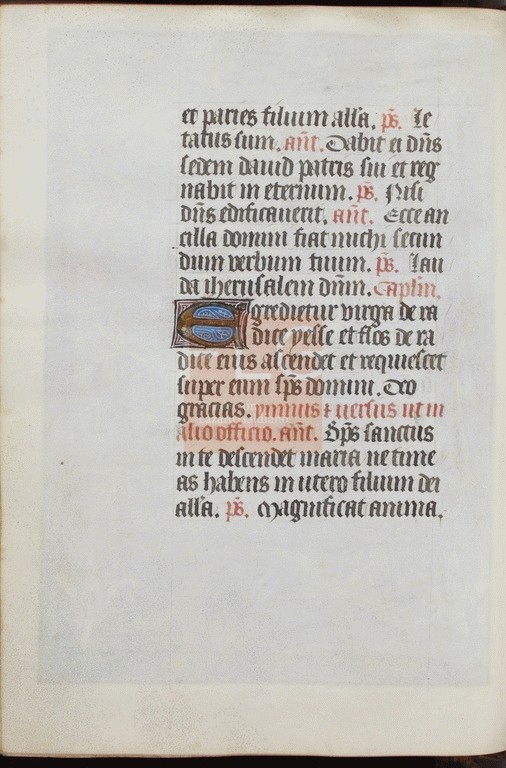 et paries filium alla. ps. Le
tatus sum. ant. Dabit ei dns
sedem dauid patris sui et reg
nabit in eternum. ps. Nisi
dns edificauerit. ant. Ecce an
cilla domini fiat michi secun
dum verbum tuum. ps. Lau
da iherusalem dnm. Caplm.
Egredietur virga de ra
dice yesse et flos de ra
dice eius ascendet et requiescet
super eum sps domini. Deo
gracias. ymnus + uersus ut in
alio officio. ant. Sps sanctus
in te descendet maria ne time
as habens in utero filium dei
alla. ps. Magnificat anima.